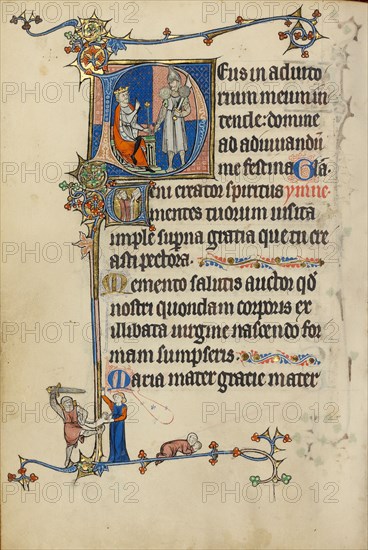 Deus in adiuto
rium meum in
tende: domine
ad adiuuandū
me festina Glā.
Veni creator spiritus ymne
mentes tuorum uisita
imple supna gratia que tu cre
asti pectora.
Memento salutis auctor qd̄
nostri quondam corporis ex
illibata uirgine nascendo for
mam sumpseris.
Maria mater gracie mater
PHOTO12